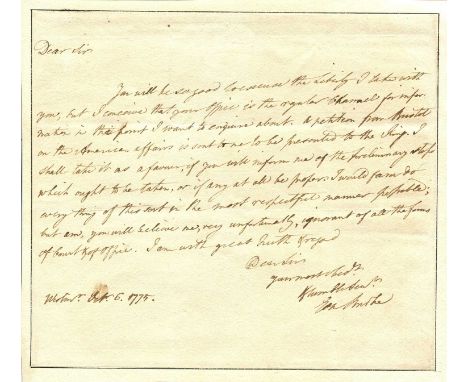 Dear Sir
You will be so good to excuse the Liberty I take with
you, but I conceive that your Office is the regular Channel for infor
mation in the point I want to enquire about. A petition from Bristol
on the American affairs is sent to me to be presented to the King. I
shall take it as a favour, if you will inform me of the preliminary steps
which ought to be taken, or if any at all be proper. I would fain do
every thing of this sort in the most respectful manner possible;
but am, you will believe me, very unfortunately, ignorant of all the forms
of Court & of Office. I am with great Truth & regard
Dear Sir
your most obed.t
& humble
Westmr. 6. 1775.